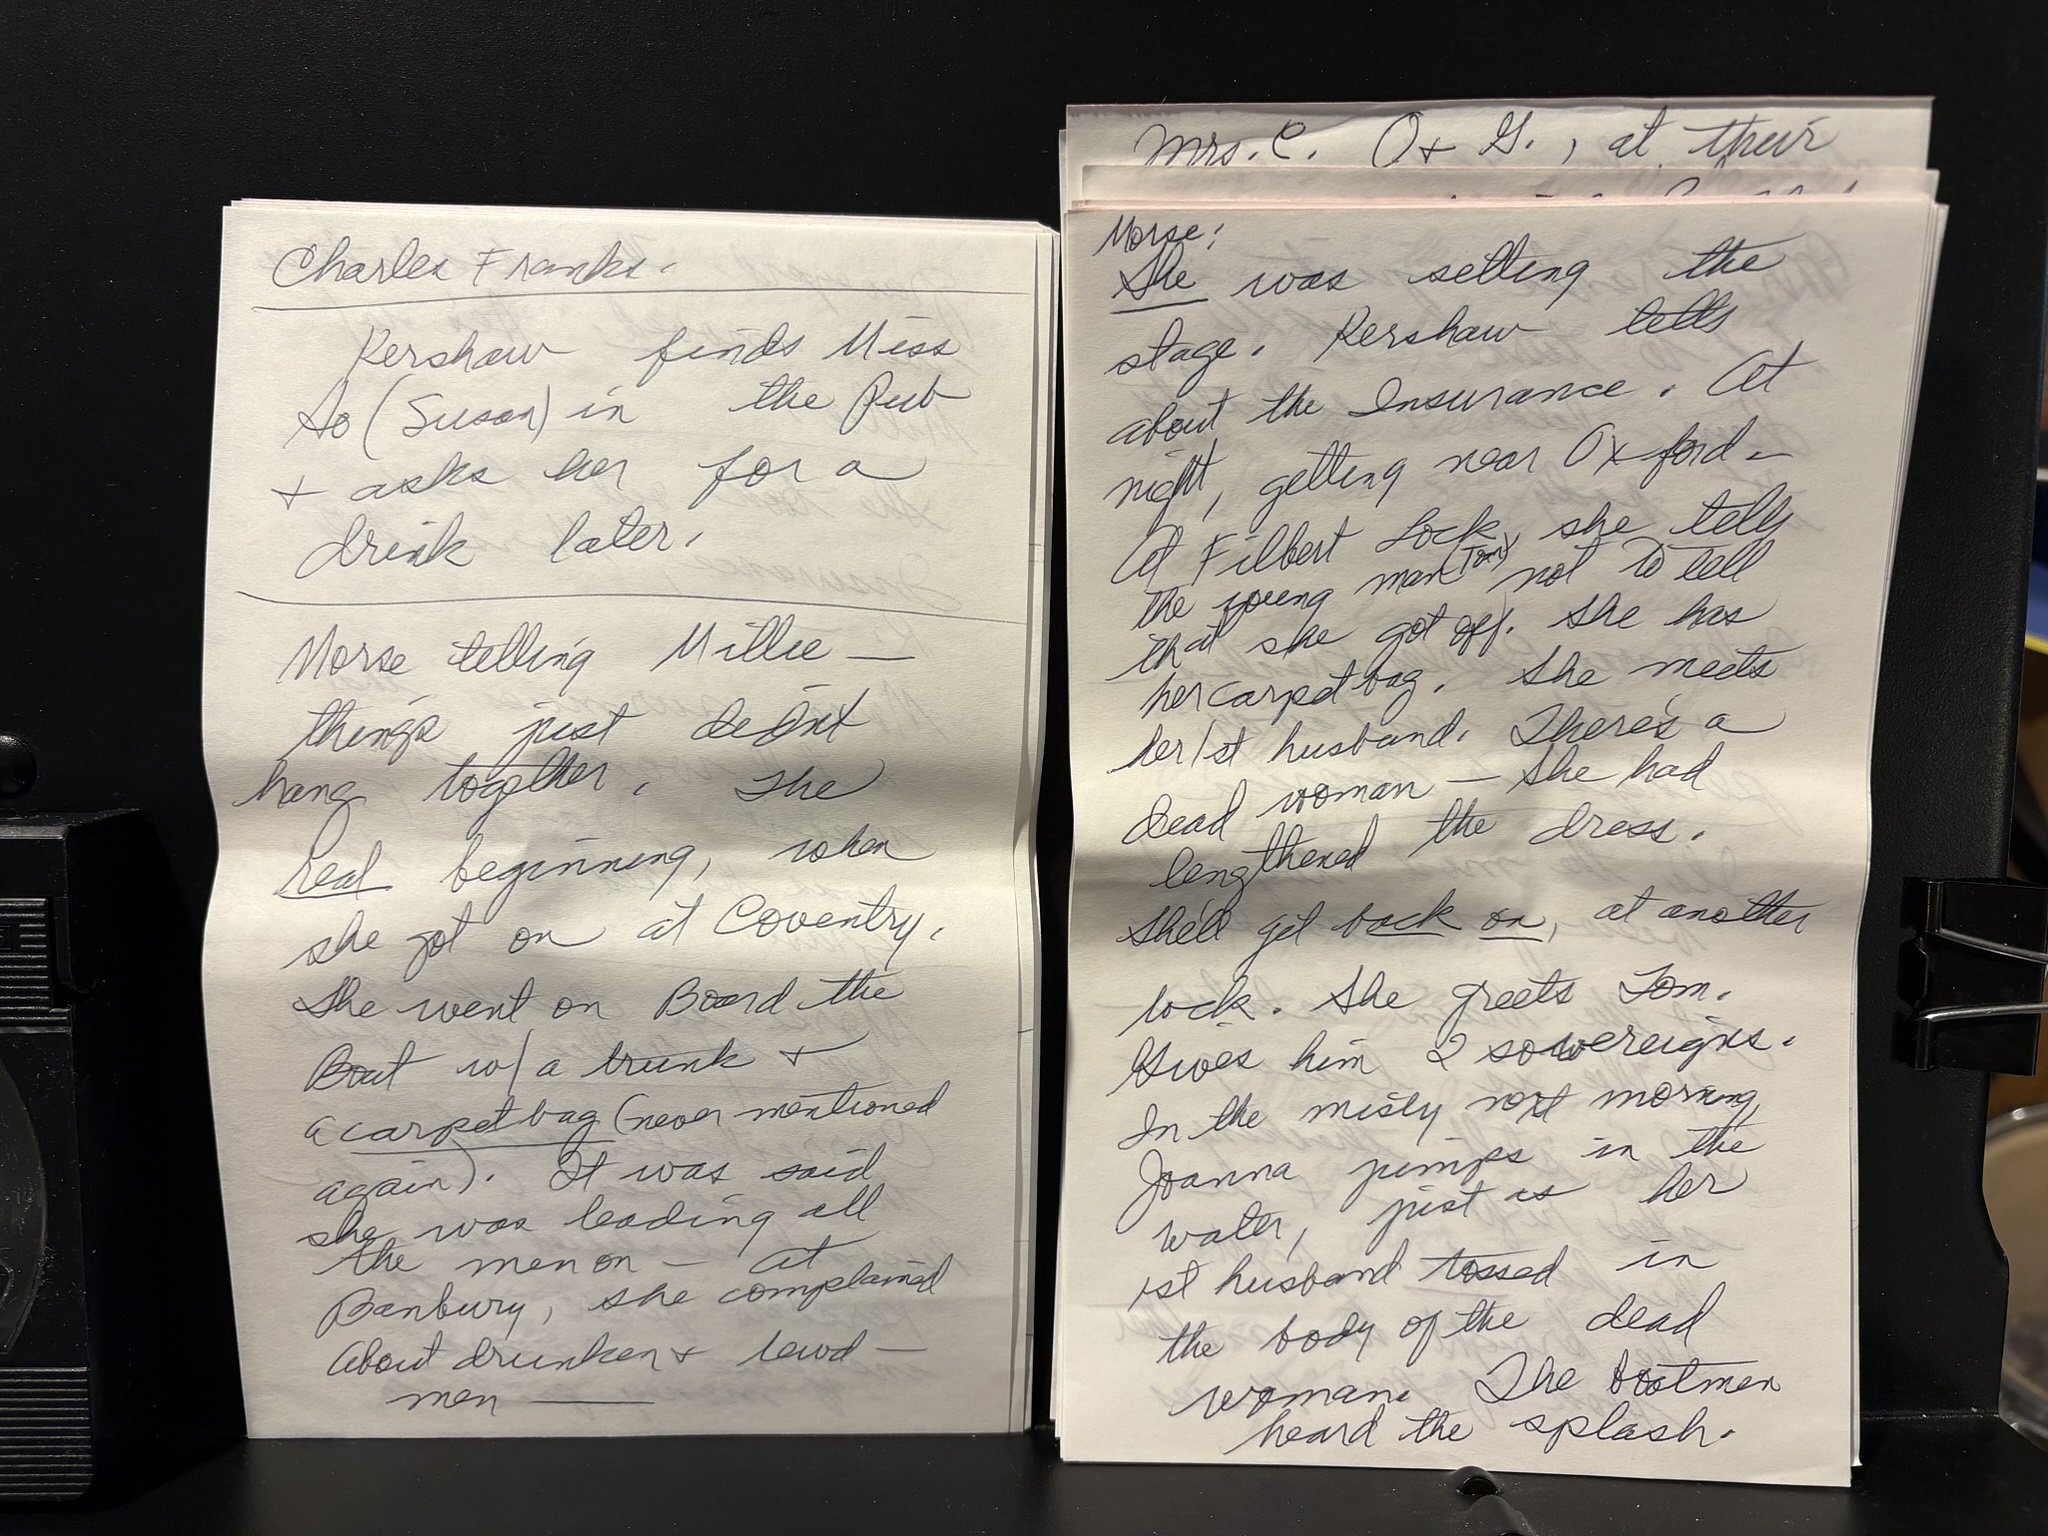 Charles Franks.
Kershaw finds Miss
So (Susan) in the Pub
+ asks her for a
drink later.
Morse telling Millie —
things just didn't
hang together. The
real beginning, when
she got on at Coventry.
She went on Board the
Boat w/a trunk +
a carpet bag (never mentioned
again). It was said
she was leading all
the men on - at
Banbury, she complained
about drunken + lewd —
men —
Mrs. C. O + G., at their
Morse:
She was setting the
stage. Kershaw tells
about the Insurance. At
night, getting near Oxford -
at Filbert Lock, she tells
the young man (Tom) not to tell
that she got off. She has
her carpet bag. She meets
her 1st husband. There's a
dead woman — she had
lengthened the dress.
She'll get back on, at another
lock. She greets Tom.
Gives him 2 sovereigns.
In the misty next morning,
Joanna jumps in the
water, just as her
1st husband tossed in
the body of the dead
woman. The boatmen
heard the splash.